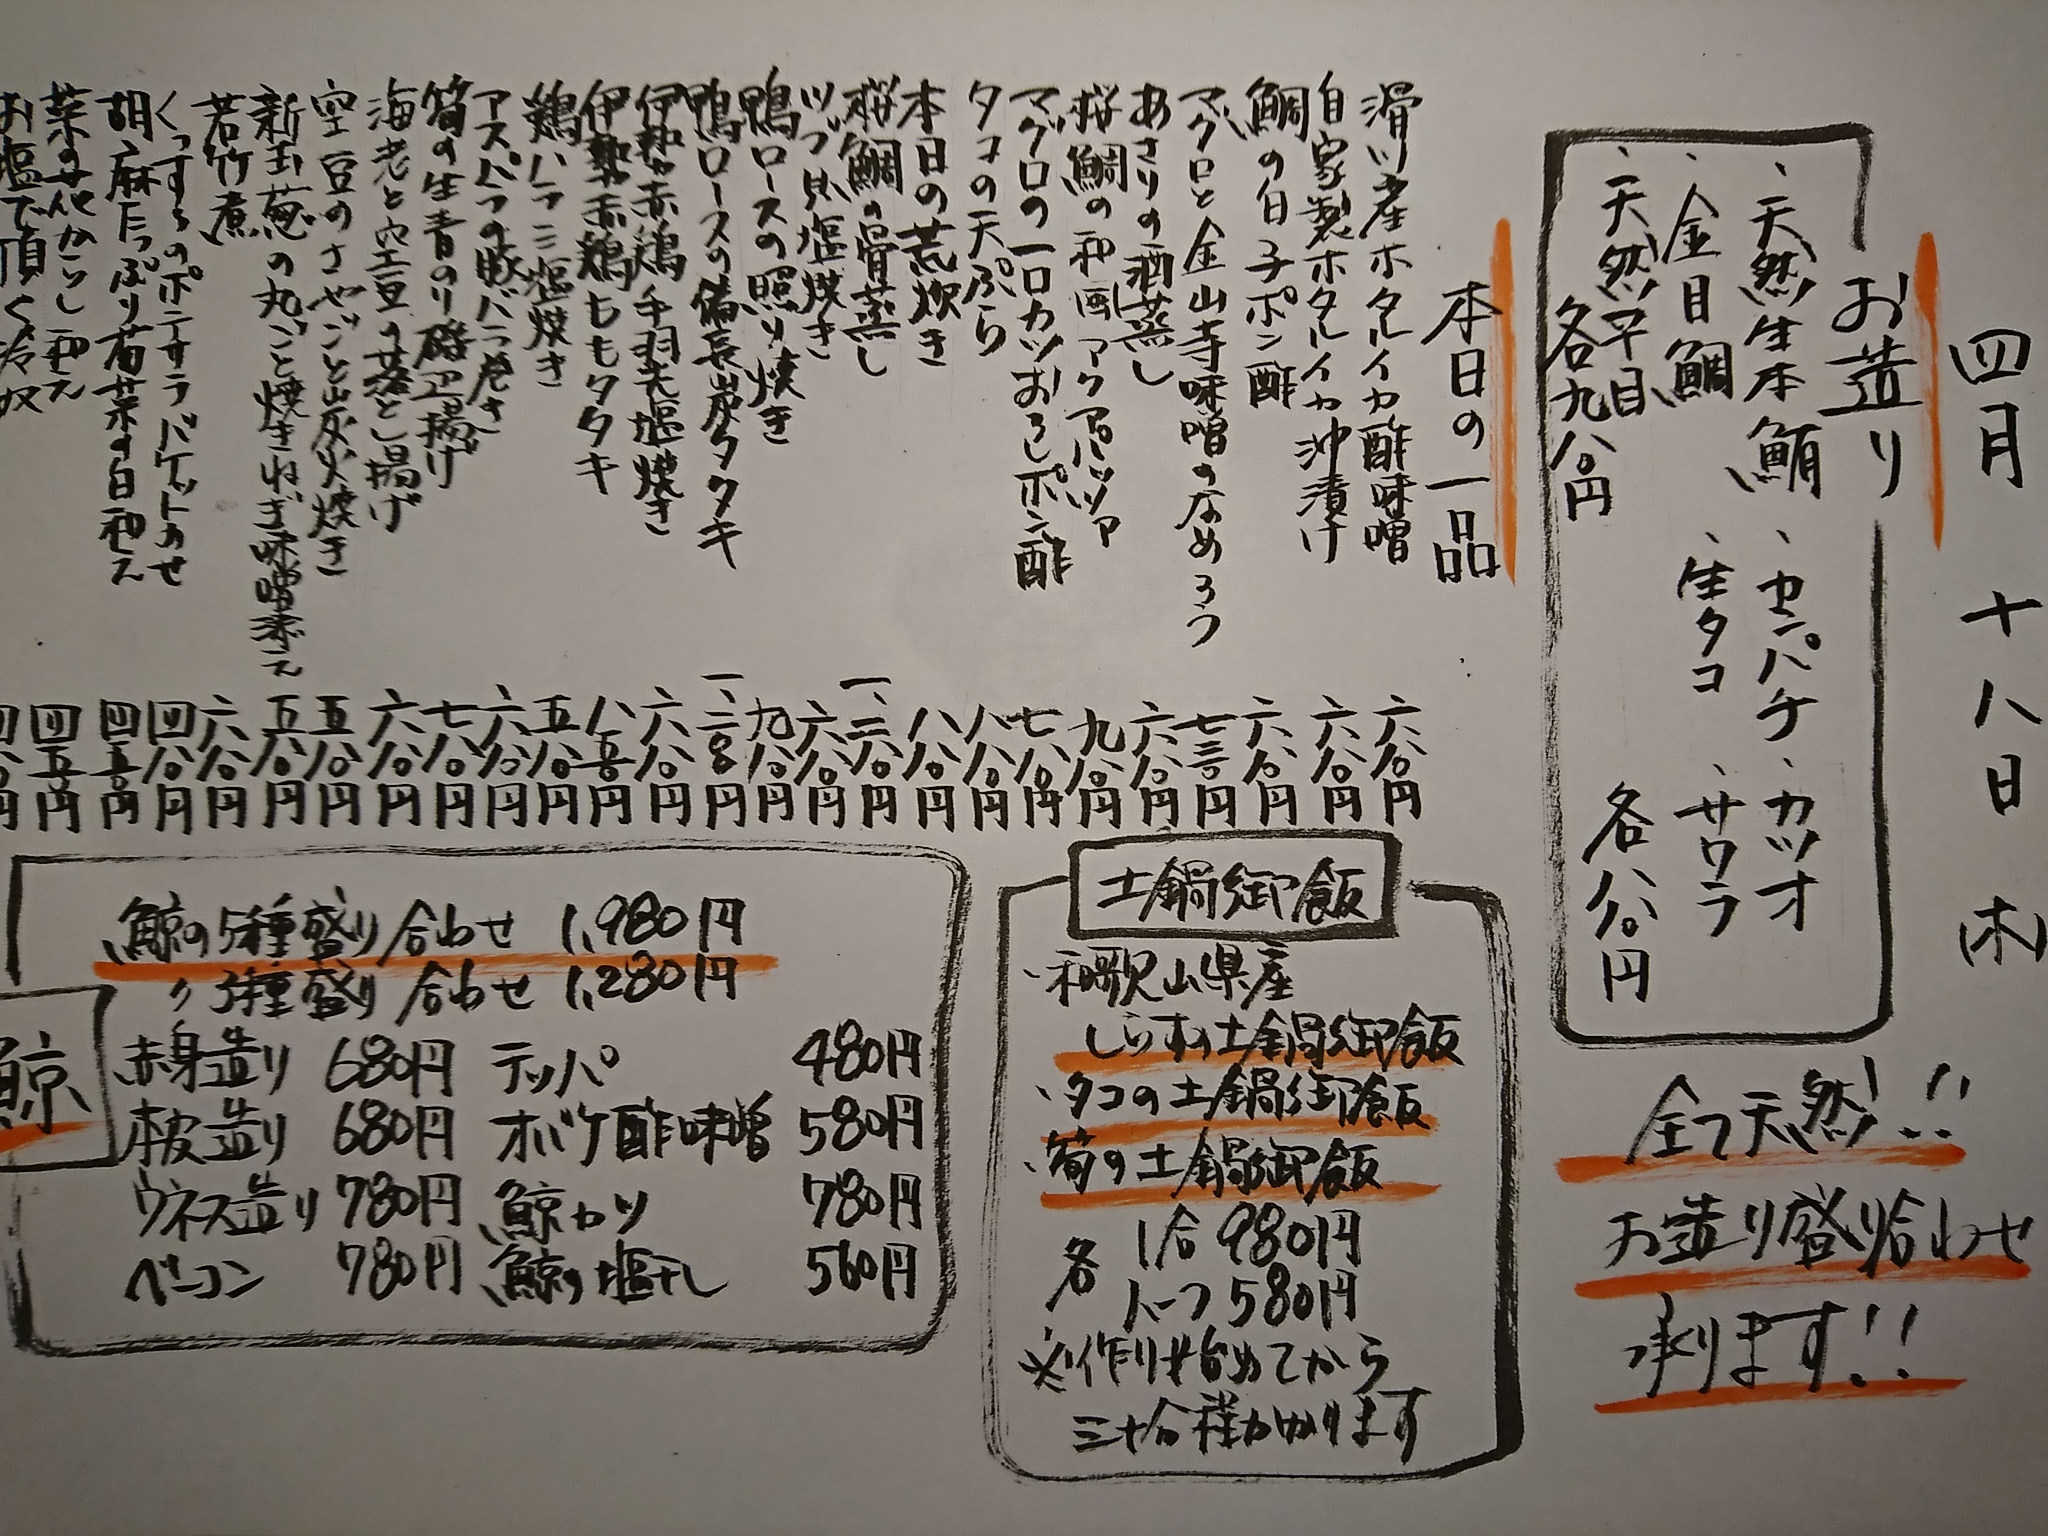 四月十八日(木)
お造り
、天然生本鮪
、セパチ
、カツオ
、金目鯛
、生タコ
、サワラ
、天然平目
各九八〇円
各八八〇円
全て天然!!
お造り盛り合わせ
承ります!!
本日の一品
滑川産ホタルイカ酢味噌 六八〇円
自家製ホタルイカ沖漬け 六八〇円
鯛の白子ポン酢 六八〇円
マグロと金山寺味噌のなめろう 七三〇円
あさりの酒蒸し 六八〇円
桜鯛の和風アクアパッツァ 九八〇円
マグロの一口カツおろしポン酢 七八〇円
タコの天ぷら 八八〇円
本日の荒炊き 八八〇円
桜鯛の骨蒸し 一、二八〇円
ツブ貝塩焼き 六八〇円
鴨ロースの照り焼き 九八〇円
鴨ロースの備長炭タタキ
伊勢赤鶏手羽先塩焼き 六八〇円
伊勢赤鶏ももタタキ 八五〇円
鶏ハラミ塩焼き 五八〇円
アスパラの豚バラ巻き 六八〇円
筍の生青のり磯辺揚げ 七八〇円
海老と空豆の落とし揚げ 六八〇円
空豆のさやごと炭火焼き 五八〇円
新玉葱の丸ごと焼きねぎ味噌添え 五八〇円
若竹煮 六八〇円
くっする のポテサラバケットのせ 四八〇円
胡麻たっぷり菊菜の白和え 四五〇円
菜の花からし和え 四五〇円
お塩で頂く冷奴 四八〇円
土鍋御飯
・和歌山県産
しらすの土鍋御飯
・タコの土鍋御飯
・筍の土鍋御飯
各 1合 980円
ハーフ 580円
※作り始めてから
三十分程かかります
鯨
鯨の5種盛り合わせ 1,980円
〃 3種盛り合わせ 1,280円
赤身造り 680円 テッパ 480円
本皮造り 680円 オバケ酢味噌 580円
ウネス造り 780円 鯨カツ 780円
ベーコン 780円 鯨の塩干し 560円